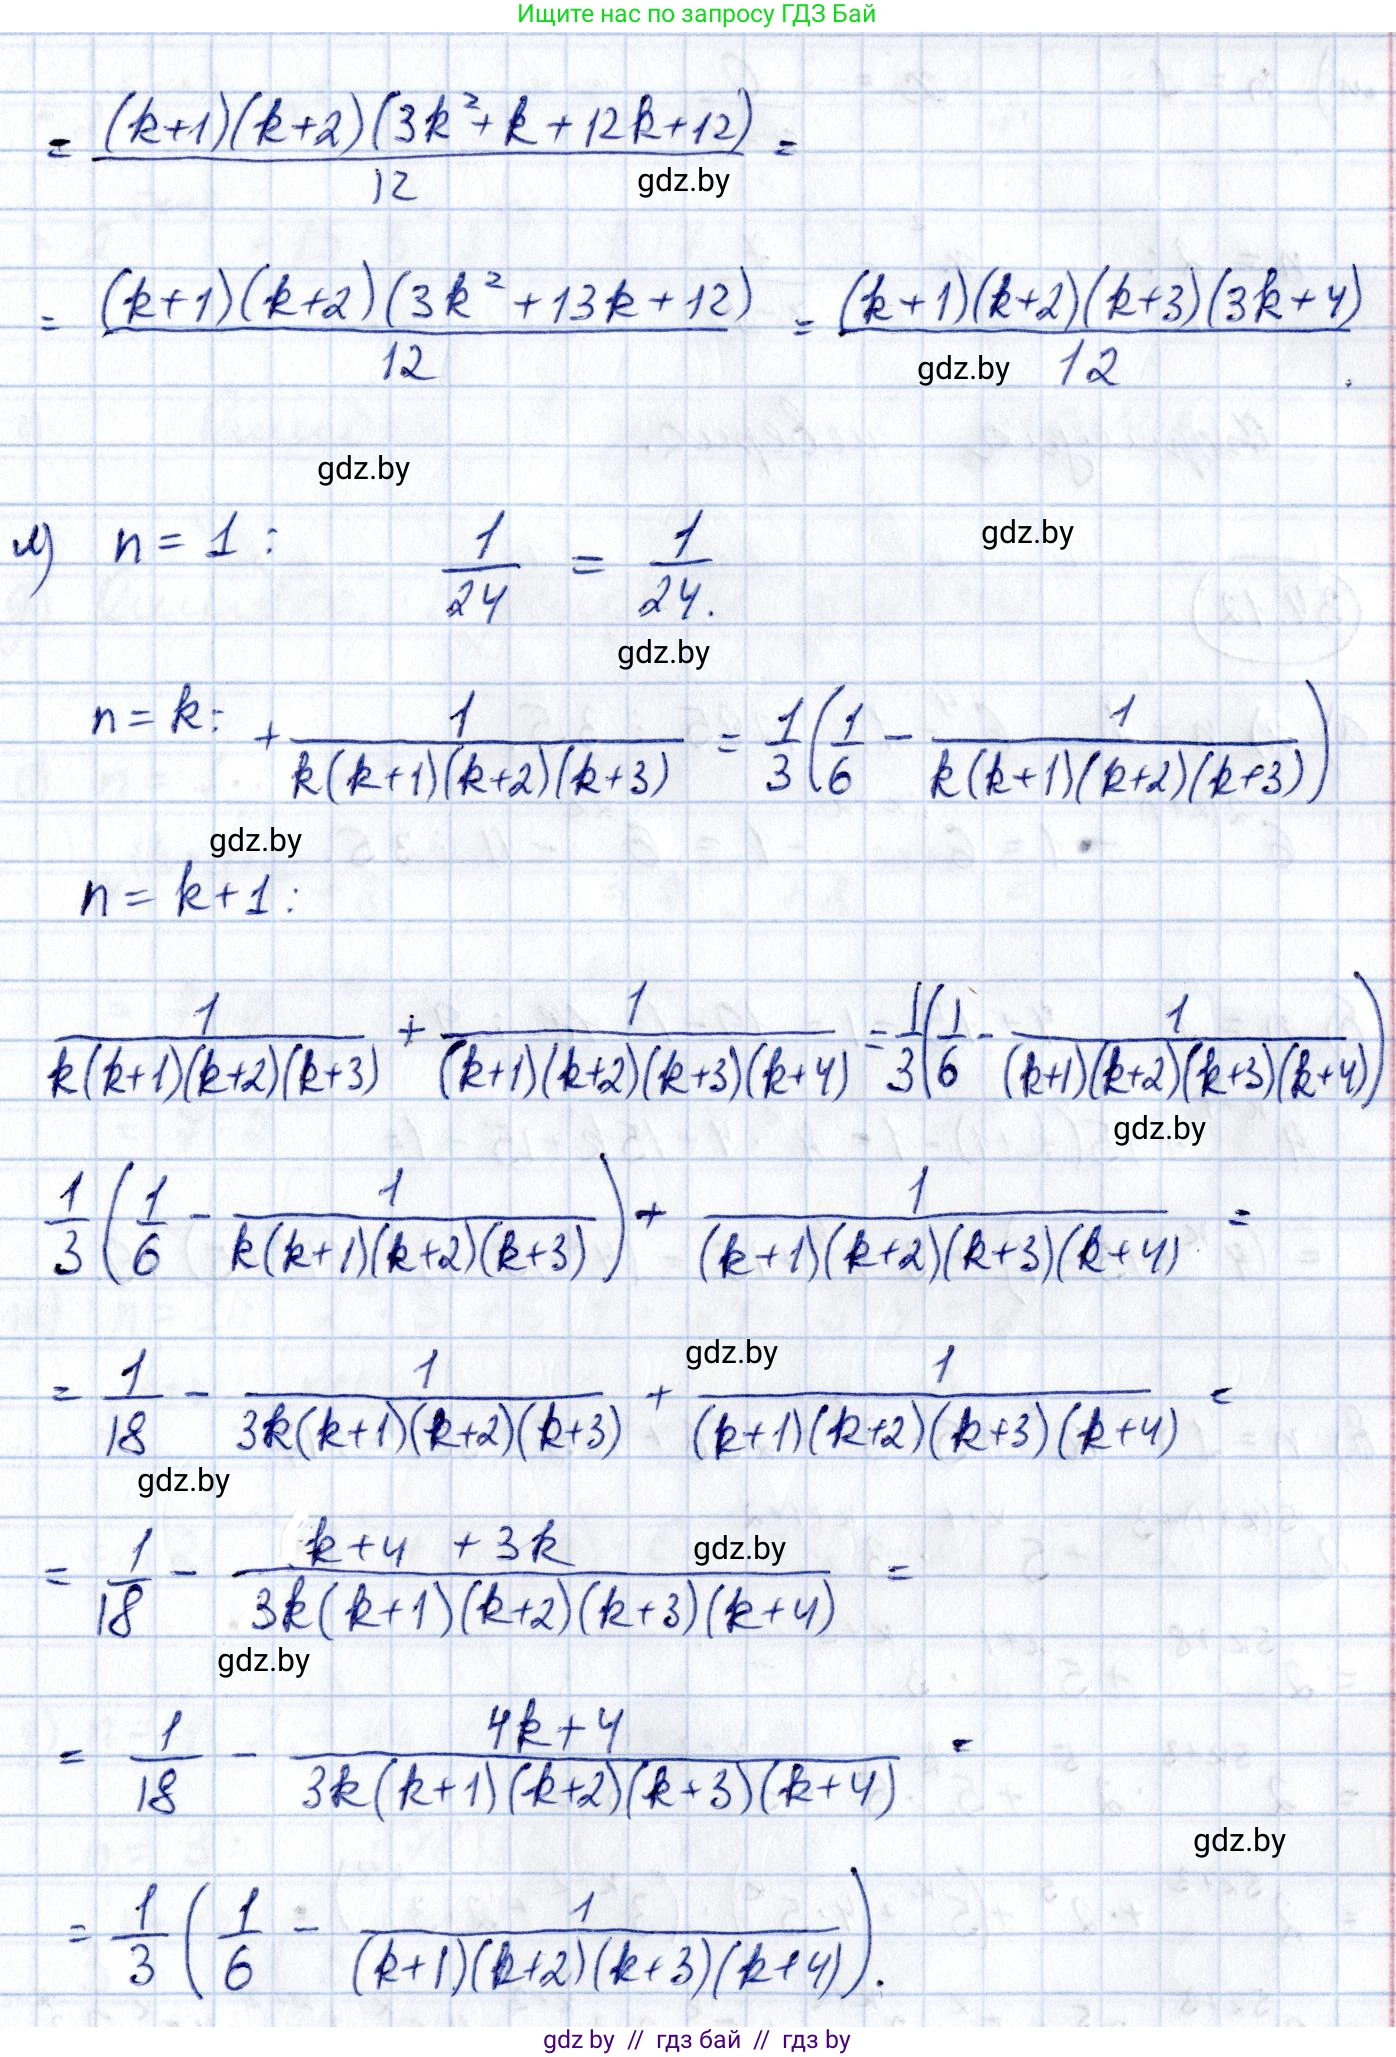 Ищите нас по запросу ГДЗ Бай
= (k+1)(k+2)(3k²+k+12k+12)/12 =
gdz.by
= (k+1)(k+2)(3k²+13k+12)/12 = (k+1)(k+2)(k+3)(3k+4)/12.
gdz.by
gdz.by
м) n = 1 : 1/24 = 1/24.
gdz.by
gdz.by
n = k: + 1/(k(k+1)(k+2)(k+3)) = 1/3 (1/6 - 1/(k(k+1)(k+2)(k+3)))
gdz.by
n = k+1 :
1/(k(k+1)(k+2)(k+3)) + 1/((k+1)(k+2)(k+3)(k+4)) = 1/3 (1/6 - 1/((k+1)(k+2)(k+3)(k+4)))
gdz.by
1/3 (1/6 - 1/(k(k+1)(k+2)(k+3))) + 1/((k+1)(k+2)(k+3)(k+4)) =
gdz.by
= 1/18 - 1/(3k(k+1)(k+2)(k+3)) + 1/((k+1)(k+2)(k+3)(k+4)) =
gdz.by
= 1/18 - (k+4 + 3k)/(3k(k+1)(k+2)(k+3)(k+4)) =
gdz.by
gdz.by
= 1/18 - (4k+4)/(3k(k+1)(k+2)(k+3)(k+4)) =
gdz.by
= 1/3 (1/6 - 1/((k+1)(k+2)(k+3)(k+4))).
gdz by // гдз бай // гдз by